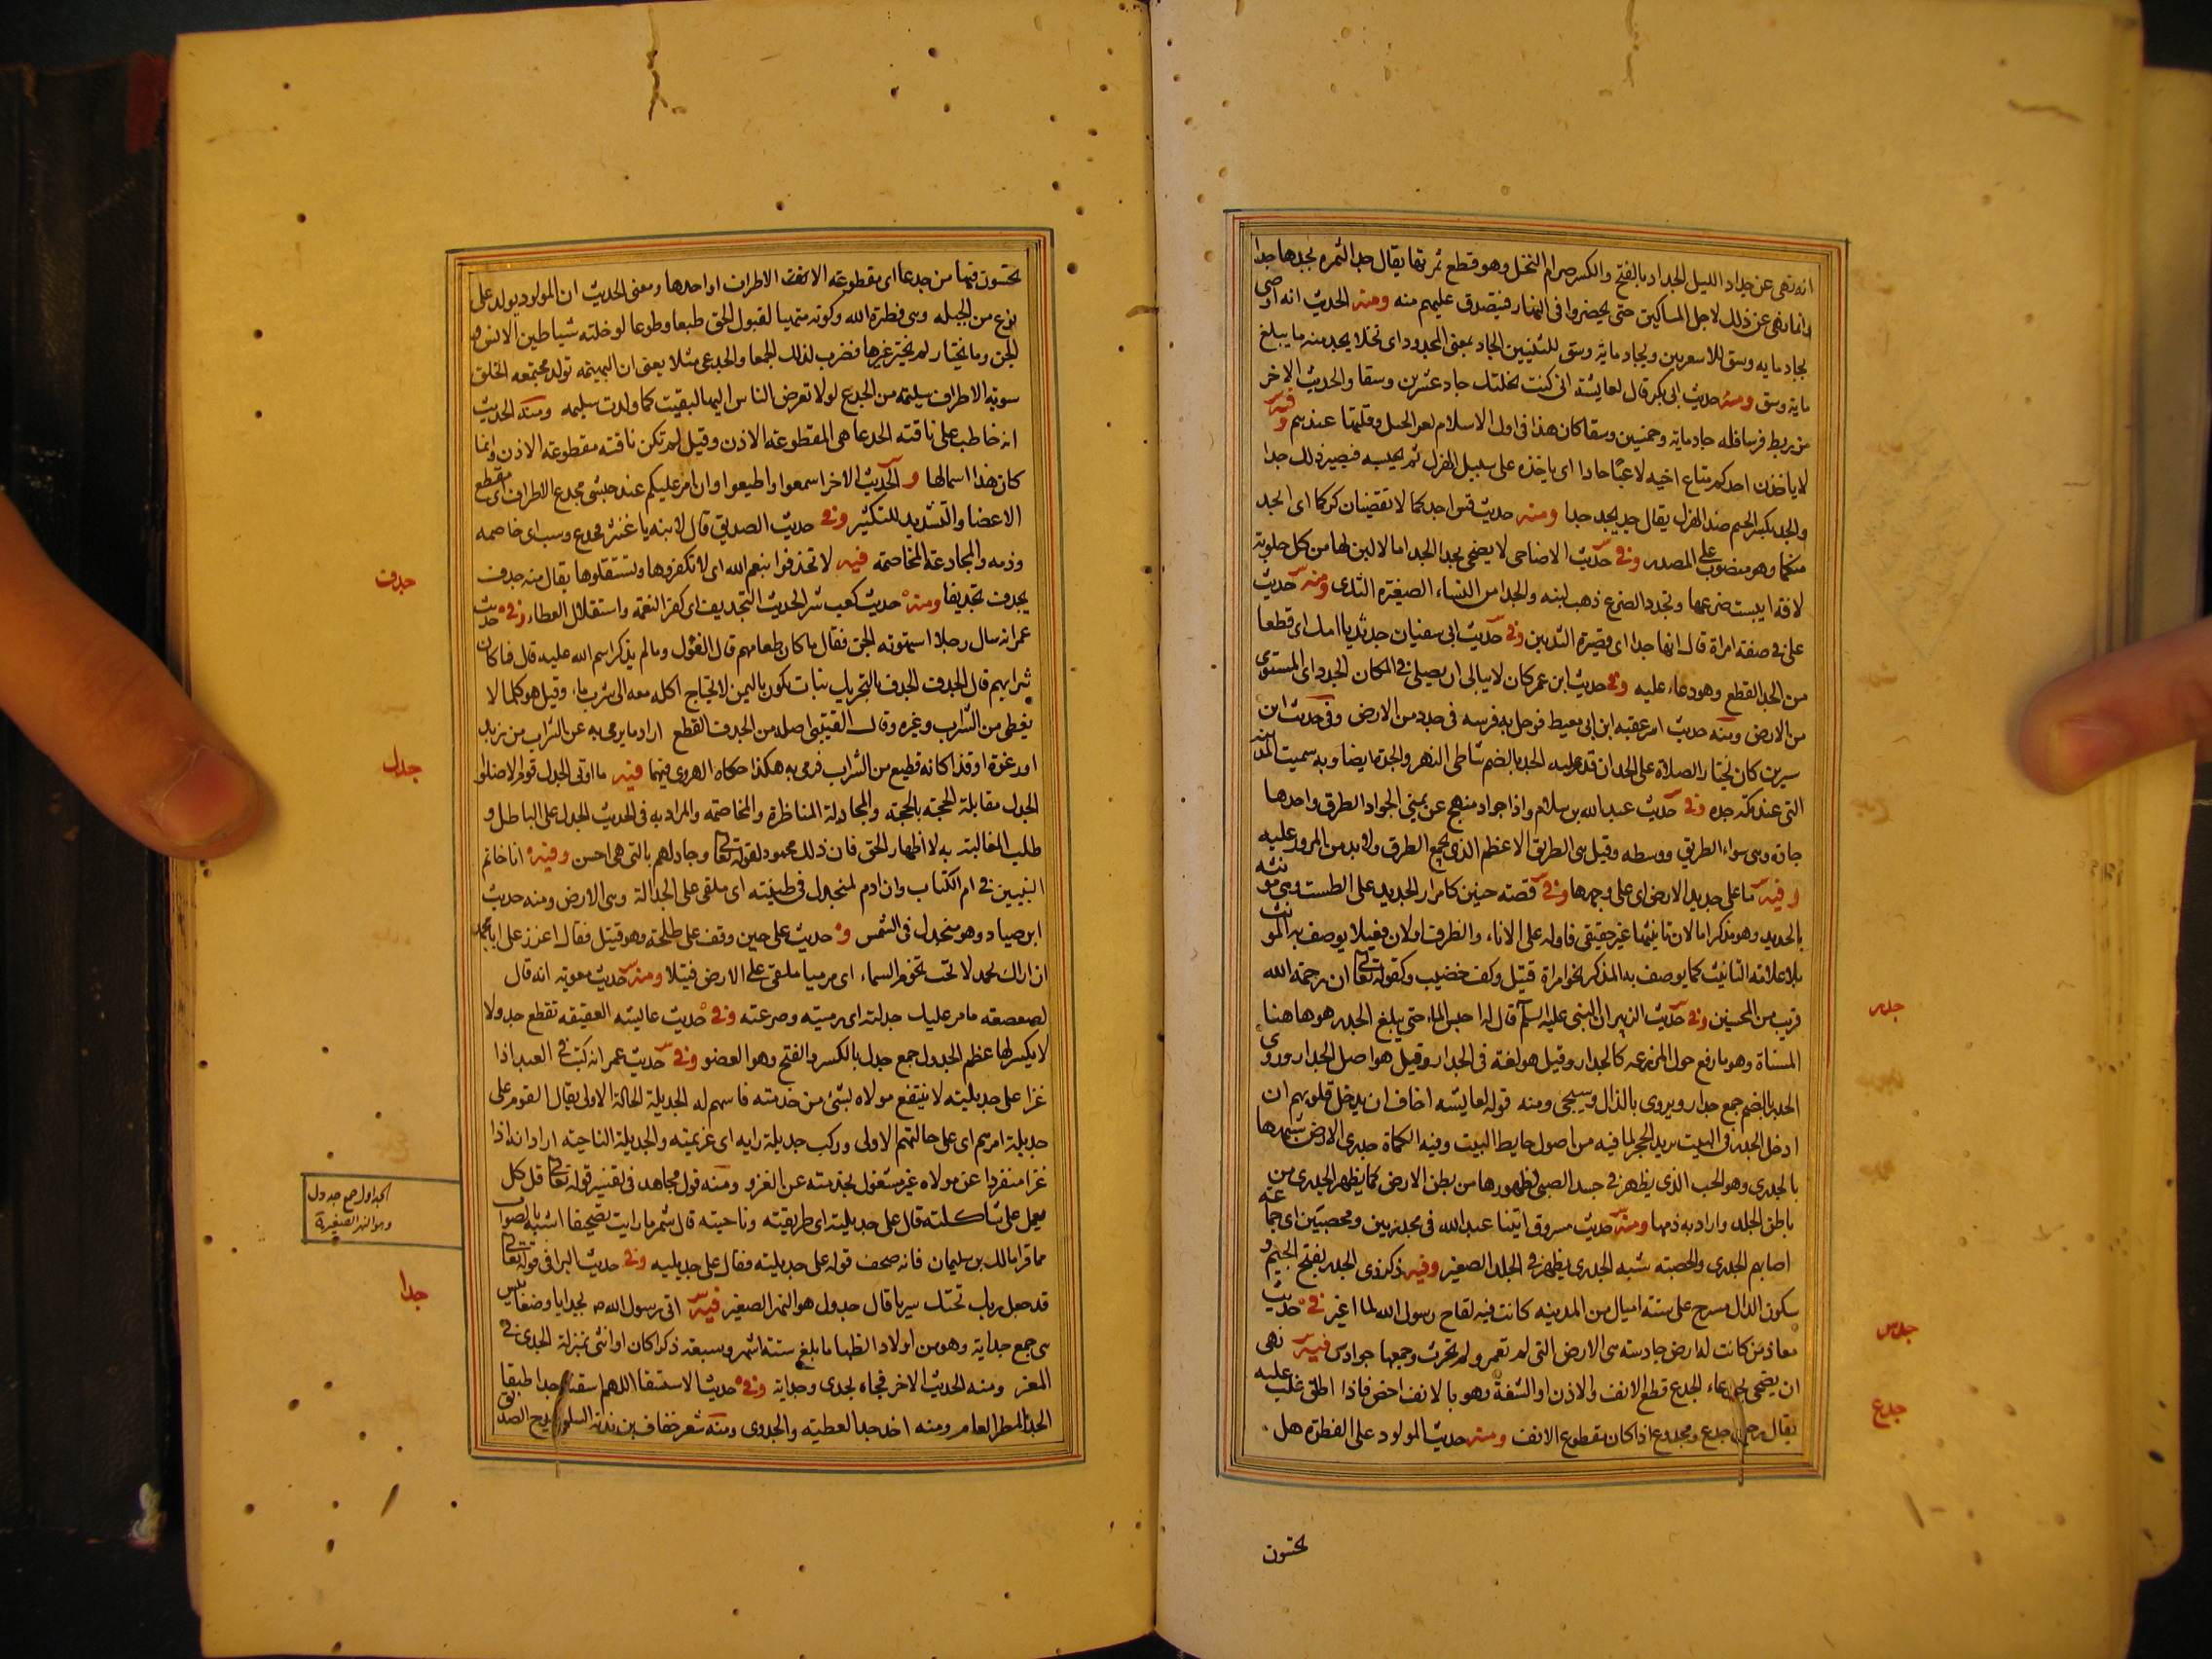 انه نهى عن جداد الليل الجداد بالفتح والكسر صرام النخل وهو قطع ثمرتها يقال جد الثمرة يجدها جدا
وانما نهى عن ذلك لاجل المساكين حتى يحضروا فى النهار فيتصدق عليهم منه ومنه الحديث انه اوصى
بجاد مايه وسق للاسعريين وبجاد ماية وسق للشيبيين الجاد بمعنى المجدود اى نخلا يجد منه ما يبلغ
ماية وسق ومنه حديث ابى بكر قال لعايشه انى كنت نحلتك جاد عشرين وسقا والحديث الاخر
من ربط فرسا فله جاد ماية وخمسين وسقا كان هذا فى اول الاسلام لعز الخيل وقلتها عندهم وفيه
لا ياخذن احدكم متاع اخيه لاعبا جادا اى ياخذه على سبيل الهزل ثم يحبسه فيصير ذلك جدا
والجد بكسر الجيم ضد الهزل يقال جد يجد جدا ومنه حديث قس اجدكما لا تقضيان كراكما اى ابجد
منكما وهو منصوب على المصدر وفى حديث الاضاحى لا يضحى بجدا الجدا ما لا لبن لها من كل حلوبة
لافة ايبست ضرعها وتجدد الضرع ذهب لبنه والجدا من النساء الصغيرة الثدى ومنه حديث
على فى صفة امراة قال انها جدا اى قصيرة الثديين وفى حديث ابى سفيان جد ثديا امك اى قطعا
من الجد القطع وهو دعاء عليه وفى حديث ابن عمر كان لا يبالى ان يصلى فى المكان الجدد اى المستوى
من الارض ومنه حديث اسر عقبه ابن ابى معيط فوحل به فرسه فى جدد من الارض وفى حديث ابن
سيرين كان يختار الصلاة على الجد ان قدر عليه الجد بالضم شاطى النهر والجدة ايضا وبه سميت المدينة
التى عند مكة جده وفى حديث عبد الله بن سلام واذا جواد منهج عن يمينى الجواد الطرق واحدها
جادة وهى سواء الطريق ووسطه وقيل هى الطريق الاعظم الذى يجمع الطرق ولا بد من المرور عليه
وفيه ما على جديد الارض اى على وجهها وفى قصة حنين كامرار الحديد على الطست وهى مونثه
بالجديد وهو مذكر اما لان تانيثها غير حقيقى فاوله على الاناء والظرف او لان فعيلا يوصف به المونث
بلا علامة التانيث كما يوصف به المذكر نحو امراة قتيل وكف خضيب وكقوله تعالى ان رحمة الله
قريب من المحسنين وفى حديث الزبير ان النبى عليه السلم قال له احبس الماء حتى يبلغ الجدر هو هاهنا
المسناة وهو ما رفع حول المزرعه كالجدار وقيل هو لغة فى الجدار وقيل هو اصل الجدار وروى
الجدر بالضم جمع جدار ويروى بالذال وسيجى ومنه قوله لعايشه اخاف ان يدخل قلوبهم ان
ادخل الجدر فى البيت يريد الحجر لما فيه من اصول حايط البيت وفيه الكماة جدرى الارض شبهها
بالجدرى وهو الحب الذى يظهر فى جسد الصبى لظهورها من بطن الارض كما يظهر الجدرى من
باطن الجلد واراد به ذمها ومنه حديث مسروق اتينا عبد الله فى مجدرين ومحصبين اى جماعة
اصابهم الجدرى والحصبة شبه الجدرى يظهر فى الجلد الصغير وفيه ذكر ذى الجدر بفتح الجيم و
سكون الدال مسرح على ستة اميال من المدينه كانت فيه لقاح رسول الله لما اغير فى حديث
معاذ من كانت له ارض جادسة هى الارض التى لم تعمر ولم تحرث وجمعها جوادس فيه نهى
ان يضحى بجدعاء الجدع قطع الانف والاذن او الشفة وهو بالانف اخص فاذا اطلق غلب عليه
يقال رجل اجدع ومجدوع اذا كان مقطوع الانف ومنه حديث المولود على الفطرة هل
تحسون
جدر
جدس
جدع
تحسون فيها من جدعا اى مقطوعة الانف الاطراف او احدها ومعنى الحديث ان المولود يولد على
نوع من الجبله وهى فطرة الله وكونه متهيا لقبول الحق طبعا وطوعا لو خلته شياطين الانس و
الجن وما يختار لم يختر غيرها فضرب لذلك الجمعا والجدعى مثلا يعنى ان البهيمة تولد مجتمعه الخلق
سوية الاطراف سليمه من الجدع لولا تعرض الناس اليها لبقيت كما ولدت سليمه ومنه الحديث
انه خاطب على ناقته الجدعا هى المقطوعة الاذن وقيل لم تكن ناقته مقطوعة الاذن وانما
كان هذا اسما لها والحديث الاخر اسمعوا واطيعوا وان امر عليكم عبد حبشى مجدع الاطراف اى مقطع
الاعضا والتشديد للتكثير وفى حديث الصديق قال لابنه يا غنثر فجدع وسب اى خاصمه
وذمه والمجادعة المخاصمة فيه لا تجذفوا بنعم الله اى لا تكفروها وتستقلوها يقال منه جدف
يجدف تجديفا ومنه حديث كعب شر الحديث التجديف اى كفر النعمه واستقلال العطاء وفى حديث
عمر انه سال رجلا استهوته الجن فقال ما كان طعامهم قال الفول وما لم يذكر اسم الله عليه قال فما كان
شرابهم قال الجدف الجدف بالتحريك نبات يكون باليمن لا يحتاج اكله معه الى شرب ماء وقيل هو كل ما لا
يغطى من الشراب وغيره وقال القتيبى اصله من الجدف القطع اراد ما يرمى به عن الشراب من زبد
او رغوة او قذا كانه قطع من الشراب فرمى به هكذا حكاه الهروى فيهما فيه ما اوتى الجدل قوم الا ضلوا
الجدل مقابلة الحجة بالحجة والمجادلة المناظرة والمخاصمة والمراد به فى الحديث الجدل على الباطل و
طلب المغالبة به لا اظهار الحق فان ذلك محمود لقوله تعالى وجادلهم بالتى هى احسن وفيه انا خاتم
النبيين فى ام الكتاب وان ادم لمنجدل فى طينته اى ملقى على الجدالة وهى الارض ومنه حديث
ابن صياد وهو منجدل فى الشمس و حديث على حين وقف على طلحة وهو قتيل فقال اعزز على ابا محمد
ان اراك مجدلا تحت نجوم السماء اى مرميا ملقى على الارض قتيلا ومنه حديث معوية انه قال
لصعصعه ما مر عليك جدلته اى رميته وصرعته وفى حديث عايشه العقيقه تقطع جدولا
لا يكسر لها عظم الجدول جمع جدل بالكسر والفتح وهو العضو وفى حديث عمر انه كتب فى العبد اذا
غزا على جديلته لا ينتفع مولاه بشئ من خدمته فاسهم له الجديلة الحالة الاولى يقال القوم على
جديلة امرهم اى على حالتهم الاولى وركب جديلة رايه اى عزيمته والجديلة الناحية اراد انه اذا
غزا منفردا عن مولاه غير مشغول بخدمته عن الغزو ومنه قول مجاهد فى تفسير قوله تعالى قل كل
يعمل على شاكلته قال على جديلته اى طريقته وناحيته قال شمر ما رايت تصحيفا اشبه بالصواب
مما قرا مالك بن سليمان فانه صحف قوله على جديلته فقال على جديليه وفى حديث البرا فى قوله تعالى
قد جعل ربك تحتك سريا قال جدول هو النهر الصغير فيه اتى رسول الله بجدايا وضغابيس
هى جمع جداية وهو من اولاد الظبا ما بلغ ستة اشهر وسبعة ذكرا كان او انثى بمنزلة الجدى فى
المعز ومنه الحديث الاخر فجاه بجدى وجداية وفى حديث الاستسقا اللهم اسقنا جدا طبقا
الجدا المطر العام ومنه اخذ جدا العطية والجدوى ومنه شعر خفاف بن ندبة السلمى يمدح الصديق
جدف
جدل
الجداول جمع جدول
وهو النهر الصغيرة
جدا